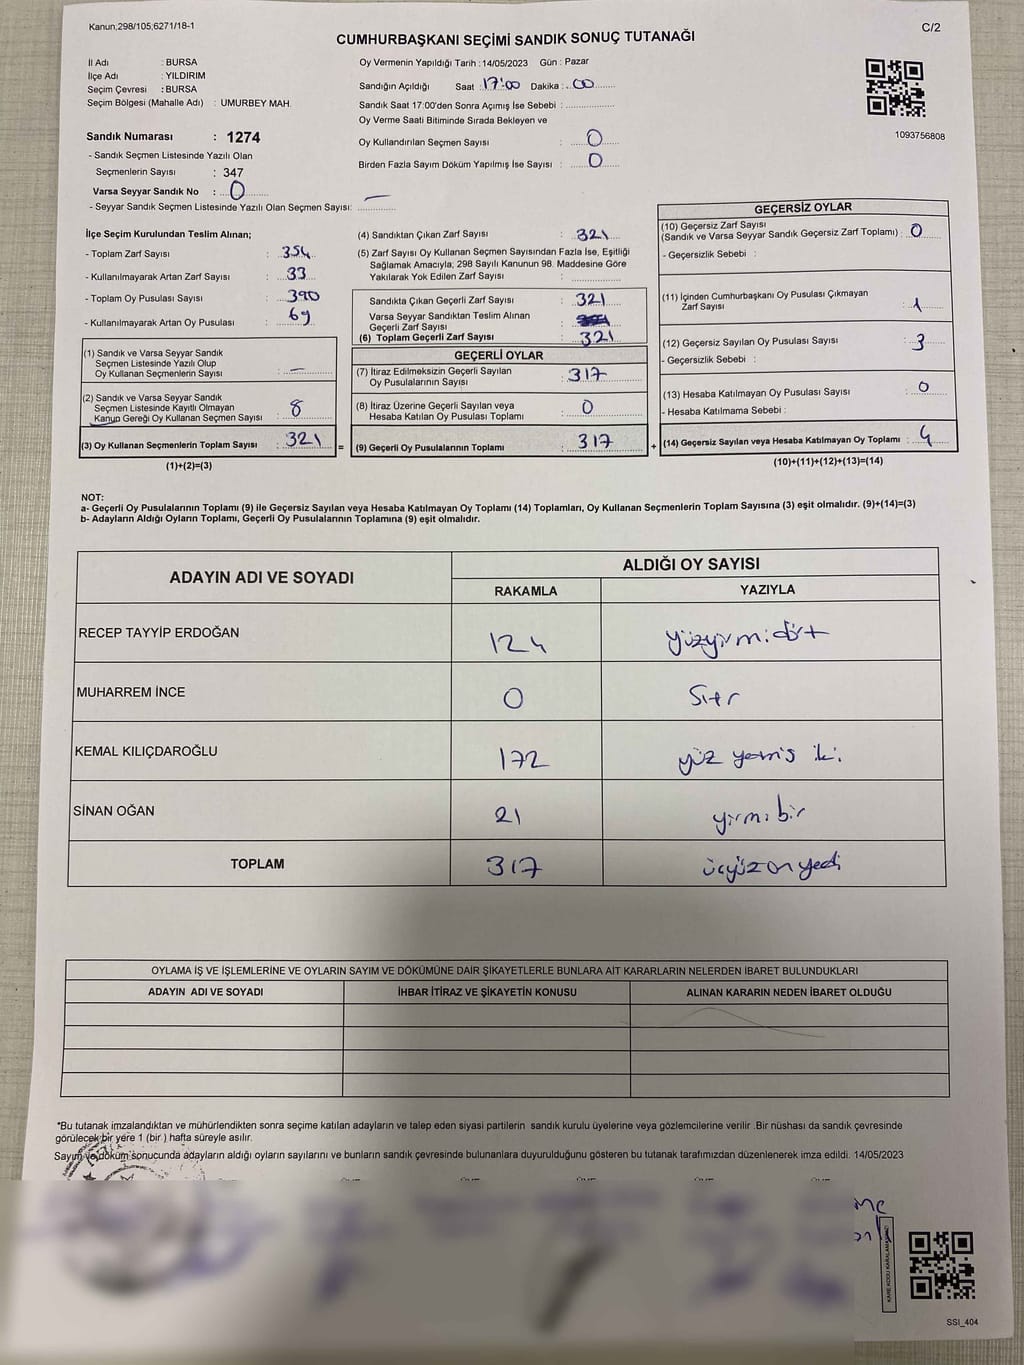 Kanun;298/105;6271/18-1
C/2
CUMHURBAŞKANI SEÇİMİ SANDIK SONUÇ TUTANAĞI
İl Adı : BURSA
İlçe Adı : YILDIRIM
Seçim Çevresi : BURSA
Seçim Bölgesi (Mahalle Adı) : UMURBEY MAH.
Sandık Numarası : 1274
- Sandık Seçmen Listesinde Yazılı Olan
Seçmenlerin Sayısı : 347
Varsa Seyyar Sandık No : 0
- Seyyar Sandık Seçmen Listesinde Yazılı Olan Seçmen Sayısı: —
Oy Vermenin Yapıldığı Tarih : 14/05/2023 Gün : Pazar
Sandığın Açıldığı Saat : 17:00 Dakika : 00
Sandık Saat 17:00'den Sonra Açımış İse Sebebi :
Oy Verme Saati Bitiminde Sırada Bekleyen ve
Oy Kullandırılan Seçmen Sayısı : 0
Birden Fazla Sayım Döküm Yapılmış İse Sayısı : 0
1093756808
İlçe Seçim Kurulundan Teslim Alınan;
- Toplam Zarf Sayısı : 354
- Kullanılmayarak Artan Zarf Sayısı : 33
- Toplam Oy Pusulası Sayısı : 390
- Kullanılmayarak Artan Oy Pusulası : 69
(1) Sandık ve Varsa Seyyar Sandık
Seçmen Listesinde Yazılı Olup
Oy Kullanan Seçmenlerin Sayısı : —
(2) Sandık ve Varsa Seyyar Sandık
Seçmen Listesinde Kayıtlı Olmayan
Kanun Gereği Oy Kullanan Seçmen Sayısı : 8
(3) Oy Kullanan Seçmenlerin Toplam Sayısı : 321
(1)+(2)=(3)
(4) Sandıktan Çıkan Zarf Sayısı : 321
(5) Zarf Sayısı Oy Kullanan Seçmen Sayısından Fazla İse, Eşitliği
Sağlamak Amacıyla; 298 Sayılı Kanunun 98. Maddesine Göre
Yakılarak Yok Edilen Zarf Sayısı :
Sandıkta Çıkan Geçerli Zarf Sayısı : 321
Varsa Seyyar Sandıktan Teslim Alınan
Geçerli Zarf Sayısı
(6) Toplam Geçerli Zarf Sayısı : 321
GEÇERLİ OYLAR
(7) İtiraz Edilmeksizin Geçerli Sayılan
Oy Pusulalarının Sayısı : 317
(8) İtiraz Üzerine Geçerli Sayılan veya
Hesaba Katılan Oy Pusulası Toplamı : 0
= (9) Geçerli Oy Pusulalarının Toplamı : 317 +
GEÇERSİZ OYLAR
(10) Geçersiz Zarf Sayısı
(Sandık ve Varsa Seyyar Sandık Geçersiz Zarf Toplamı) : 0
- Geçersizlik Sebebi :
(11) İçinden Cumhurbaşkanı Oy Pusulası Çıkmayan
Zarf Sayısı : 1
(12) Geçersiz Sayılan Oy Pusulası Sayısı : 3
- Geçersizlik Sebebi :
(13) Hesaba Katılmayan Oy Pusulası Sayısı : 0
- Hesaba Katılmama Sebebi :
(14) Geçersiz Sayılan veya Hesaba Katılmayan Oy Toplamı : 4
(10)+(11)+(12)+(13)=(14)
NOT:
a- Geçerli Oy Pusulalarının Toplamı (9) ile Geçersiz Sayılan veya Hesaba Katılmayan Oy Toplamı (14) Toplamları, Oy Kullanan Seçmenlerin Toplam Sayısına (3) eşit olmalıdır. (9)+(14)=(3)
b- Adayların Aldığı Oyların Toplamı, Geçerli Oy Pusulalarının Toplamına (9) eşit olmalıdır.
ADAYIN ADI VE SOYADI ALDIĞI OY SAYISI
RAKAMLA YAZIYLA
RECEP TAYYİP ERDOĞAN 124 yüzyirmidört
MUHARREM İNCE 0 Sıfır
KEMAL KILIÇDAROĞLU 172 yüz yetmiş iki
SİNAN OĞAN 21 yirmi bir
TOPLAM 317 üçyüz on yedi
OYLAMA İŞ VE İŞLEMLERİNE VE OYLARIN SAYIM VE DÖKÜMÜNE DAİR ŞİKAYETLERLE BUNLARA AİT KARARLARIN NELERDEN İBARET BULUNDUKLARI
ADAYIN ADI VE SOYADI İHBAR İTİRAZ VE ŞİKAYETİN KONUSU ALINAN KARARIN NEDEN İBARET OLDUĞU
*Bu tutanak imzalandıktan ve mühürlendikten sonra seçime katılan adayların ve talep eden siyasi partilerin sandık kurulu üyelerine veya gözlemcilerine verilir .Bir nüshası da sandık çevresinde
görülecek bir yere 1 (bir ) hafta süreyle asılır.
Sayım ve döküm sonucunda adayların aldığı oyların sayılarını ve bunların sandık çevresinde bulunanlara duyurulduğunu gösteren bu tutanak tarafımızdan düzenlenerek imza edildi. 14/05/2023
KARE KODU KARALAMAYINIZ!
SSI_404